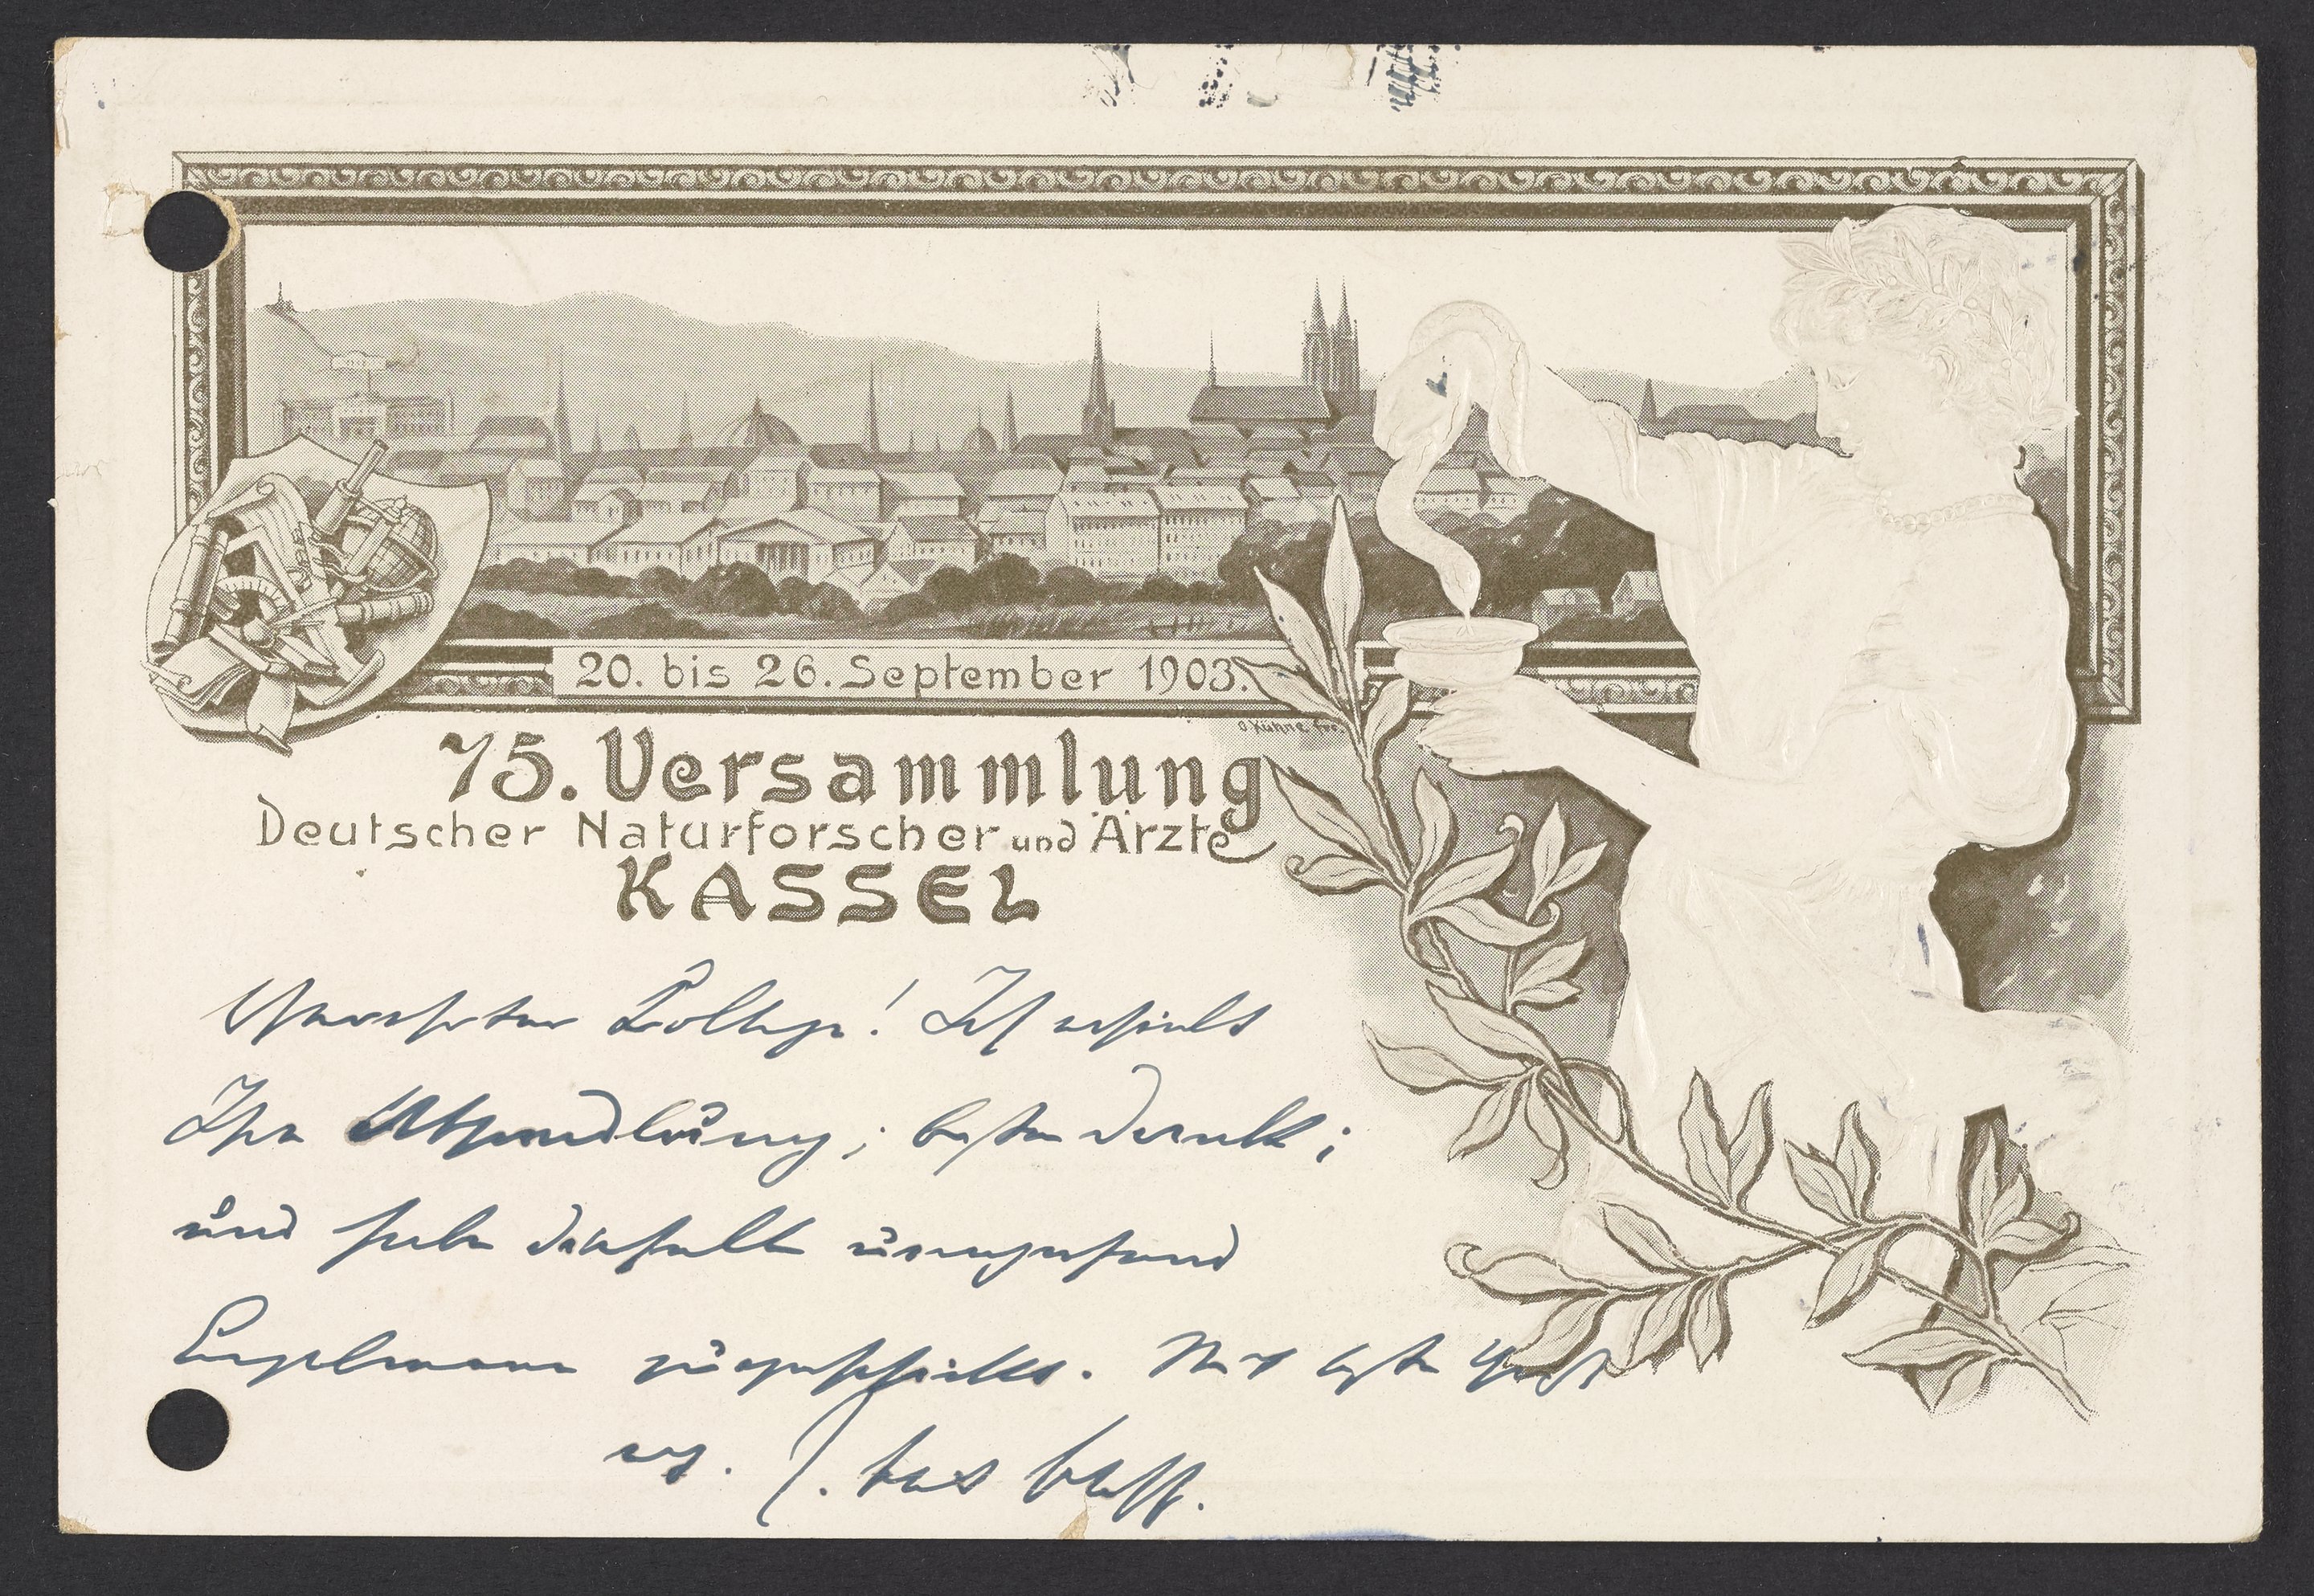 20. bis 26. September 1903.
O. Kühne
75. Versammlung
Deutscher Naturforscher und Ärzte
KASSEL
Verehrter College! Ich erhielt
Ihre Abhandlung; besten Dank;
und habe dieselbe umgehend
Engelmann zugeschickt. Mit besten
erg. J. van't Hoff.